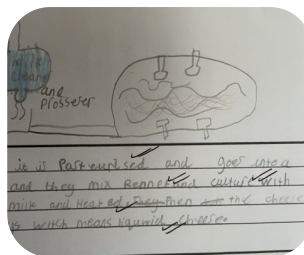 milk
cleane
and
Prosseser
it is Pasteurised and goes into a
and they mix Rennet and culture with
milk and Heated They then the cheese
is witch means liqumid cheese